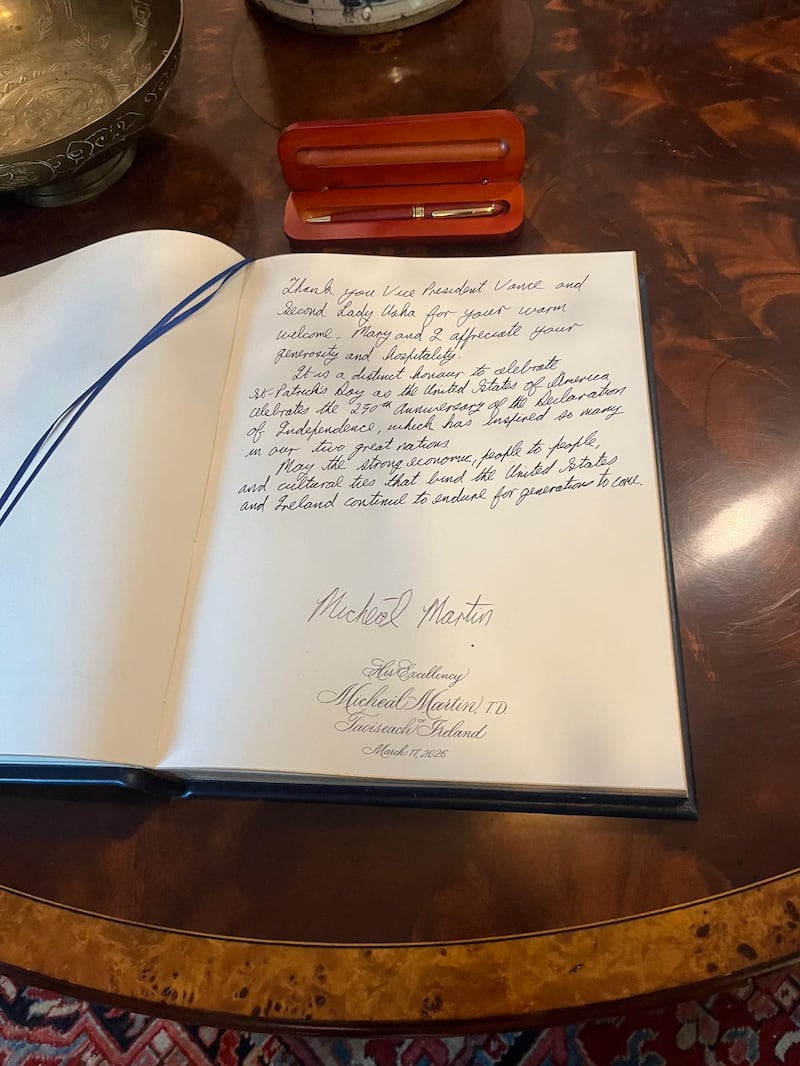 Thank you Vice President Vance and
Second Lady Usha for your warm
welcome. Mary and I appreciate your
generosity and hospitality.
It is a distinct honour to celebrate
St. Patrick's Day as the United States of America
celebrates the 250th Anniversary of the Declaration
of Independence, which has inspired so many
in our two great nations
May the strong economic, people to people,
and cultural ties that bind the United States
and Ireland continue to endure for generations to come.
Micheál Martin
His Excellency
Micheál Martin, T.D.
Taoiseach of Ireland
March 17, 2026